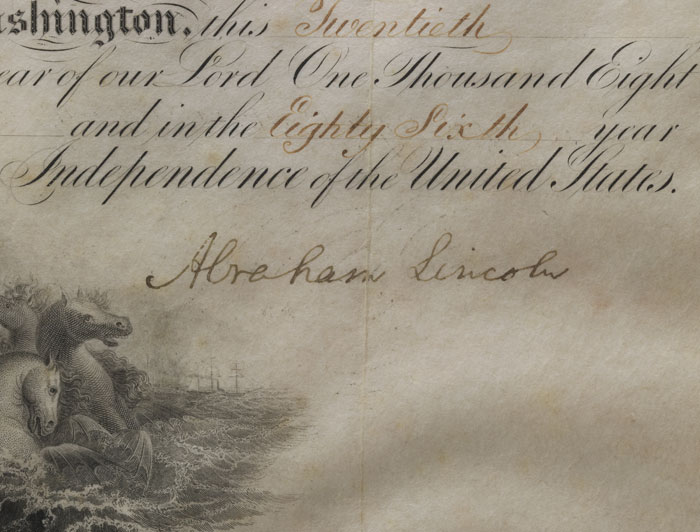 ashington. this Twentieth
ear of our Lord One Thousand Eight
and in the Eighty Sixth year
Independence of the United States.
Abraham Lincoln